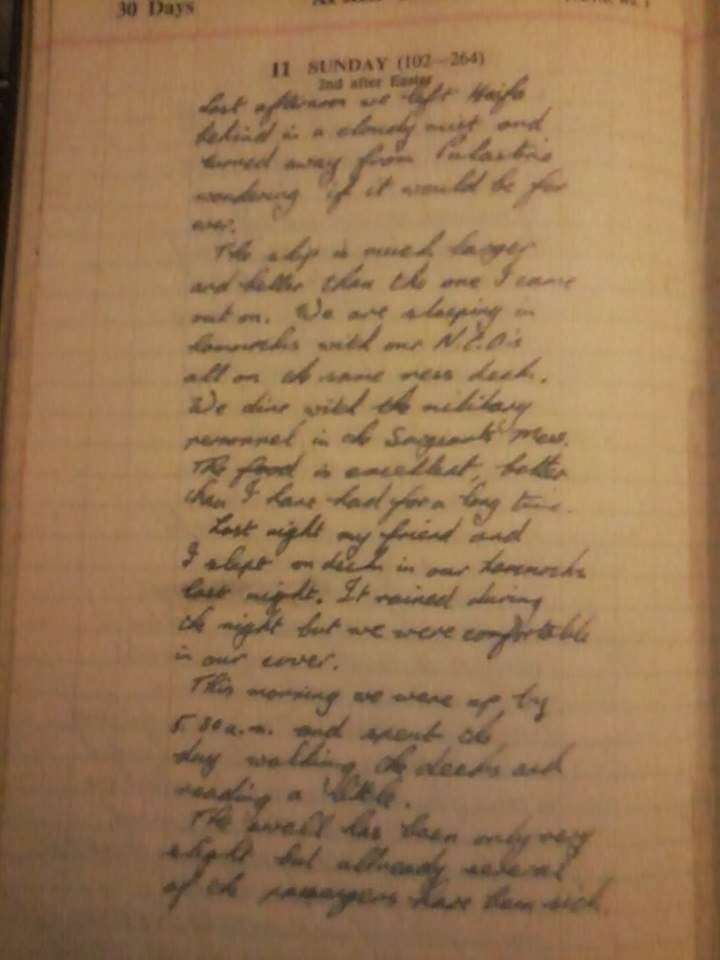 30 Days
11 SUNDAY (102—264)
2nd after Easter
Last afternoon we left Haifa
behind in a cloudy mist and
turned away from Palastine
wondering if it would be for
ever.
The ship is much larger
and better than the one I came
out on. We are sleeping in
hammocks with our N.C.O's
all on the same mess deck.
We dine with the military
personnel in the Sergeants Mess.
The food is excellent, better
than I have had for a long time.
Last night my friend and
I slept on deck in our hammocks
last night. It rained during
the night but we were comfortable
in our cover.
This morning we were up by
5.30 a.m. and spent the
day walking the decks and
reading a little.
The swell has been only very
slight but allready several
of the passengers have been sick.